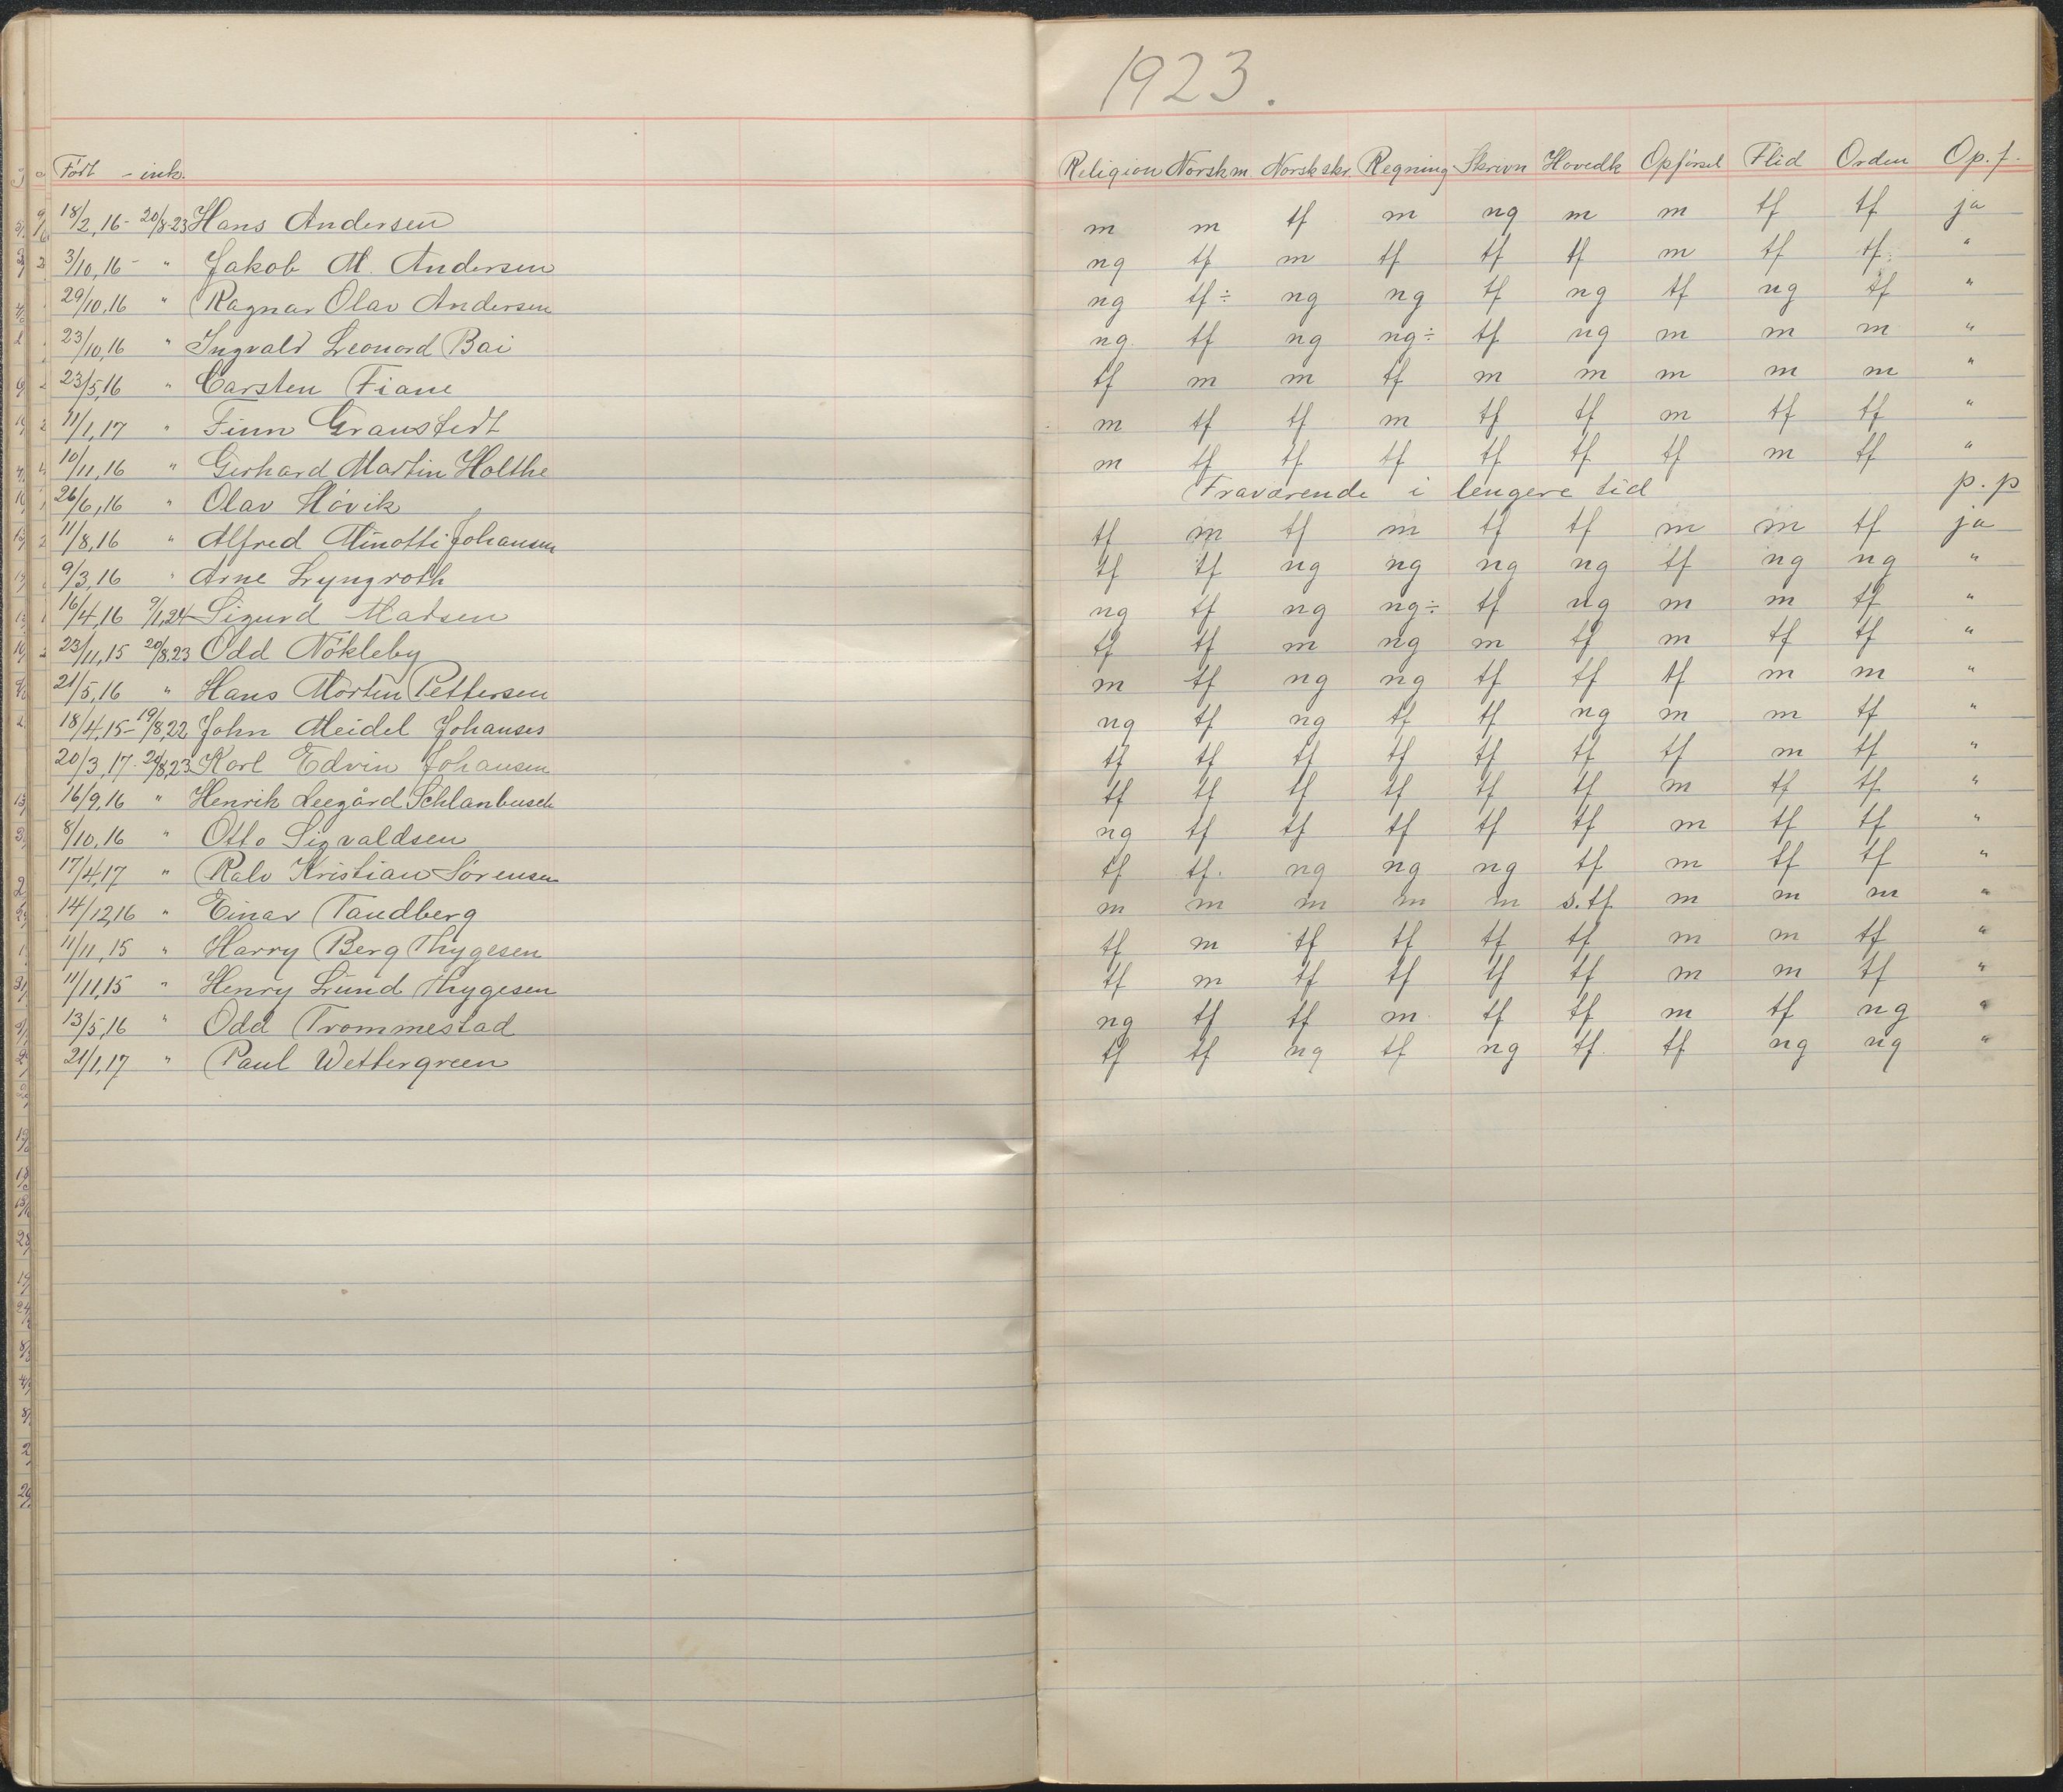 1923.
Født - ink. Religion Norsk m Norsk skr. Regning Skrivn Hovedk Opførsel Flid Orden Op. f.
18/2,16 - 20/8-23 Hans Andersen m m tf m ng m m tf tf ja
3/10,16 - " Jakob M. Andersen ng tf m tf tf tf m tf tf. "
29/10,16 " Ragnar Olav Andersen ng tf÷ ng ng tf ng tf ng tf "
23/10,16 " Ingvald Leonard Bai ng tf ng ng÷ tf ng m m m "
23/5,16 " Carsten Fiane tf m m tf m m m m m "
11/1,17 " Finn Granstedt m tf tf m tf tf m tf tf "
10/11,16 " Gerhard Martin Holthe m tf tf tf tf tf tf m tf "
26/6,16 " Olav Hövik Fraværende i lengere tid p.p
11/8,16 " Alfred Minotti Johansen tf m tf m tf tf m m tf ja
9/3,16 " Arne Lyngroth tf tf ng ng ng ng tf ng ng "
16/4,16 9/1,24 Sigurd Madsen ng tf ng ng÷ tf ng m m tf "
23/11,15 20/8,23 Odd Nökleby tf tf m ng m tf m tf tf "
21/5,16 " Hans Morten Pettersen m tf ng ng tf tf tf m m "
18/4,15 - 19/8,22 John Meidel Johanses ng tf ng tf tf ng m m tf "
20/3,17 - 20/8,23 Karl Edvin Johansen tf tf tf tf tf tf tf m tf "
16/9,16 " Henrik Leegård Schlanbusch tf tf tf tf tf tf m tf tf "
8/10,16 " Otto Sigvaldsen ng tf tf tf tf tf m tf tf "
17/4,17 " Ralv Kristian Sørensen tf tf. ng ng ng tf m tf tf "
14/12,16 " Einar Tandberg m m m m m s.tf m m m "
11/11,15 " Harry Berg Thygesen tf m tf tf tf tf m m tf "
11/11,15 " Henry Lund Thygesen tf m tf tf tf tf m m tf "
13/5,16 " Odd Trommestad ng tf tf m tf tf m tf ng "
21/1,17 " Paul Wettergreen tf tf ng tf ng tf. tf ng ng "